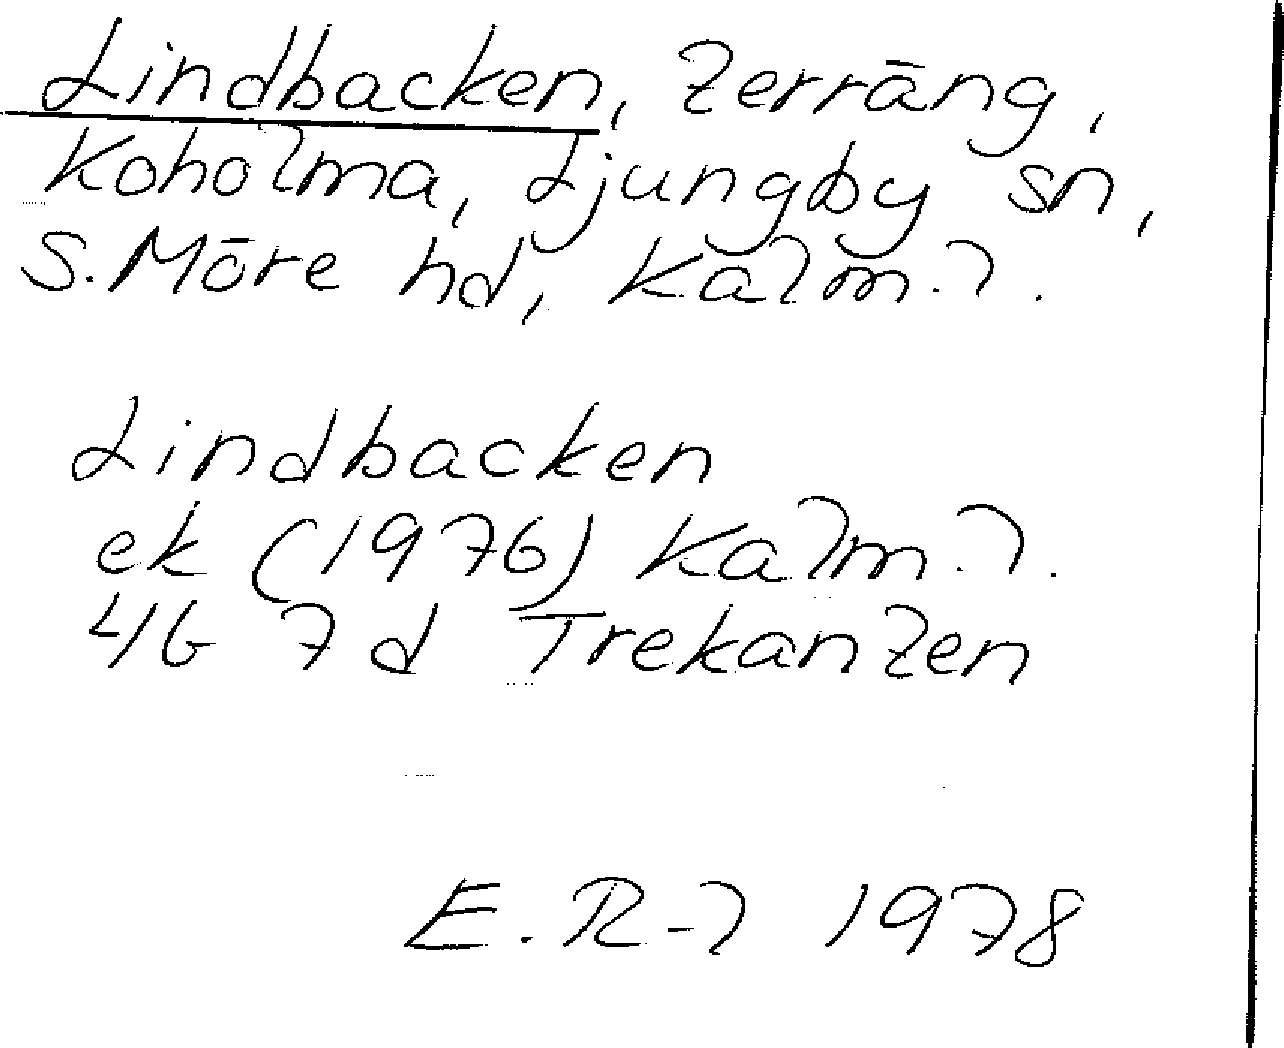 Lindbacken, terräng,
Koholma, Ljungby sn,
S. Möre hd, Kalm. l.
Lindbacken
ek (1976) Kalm. l.
4G 7d Trekanten
E. R-l 1978